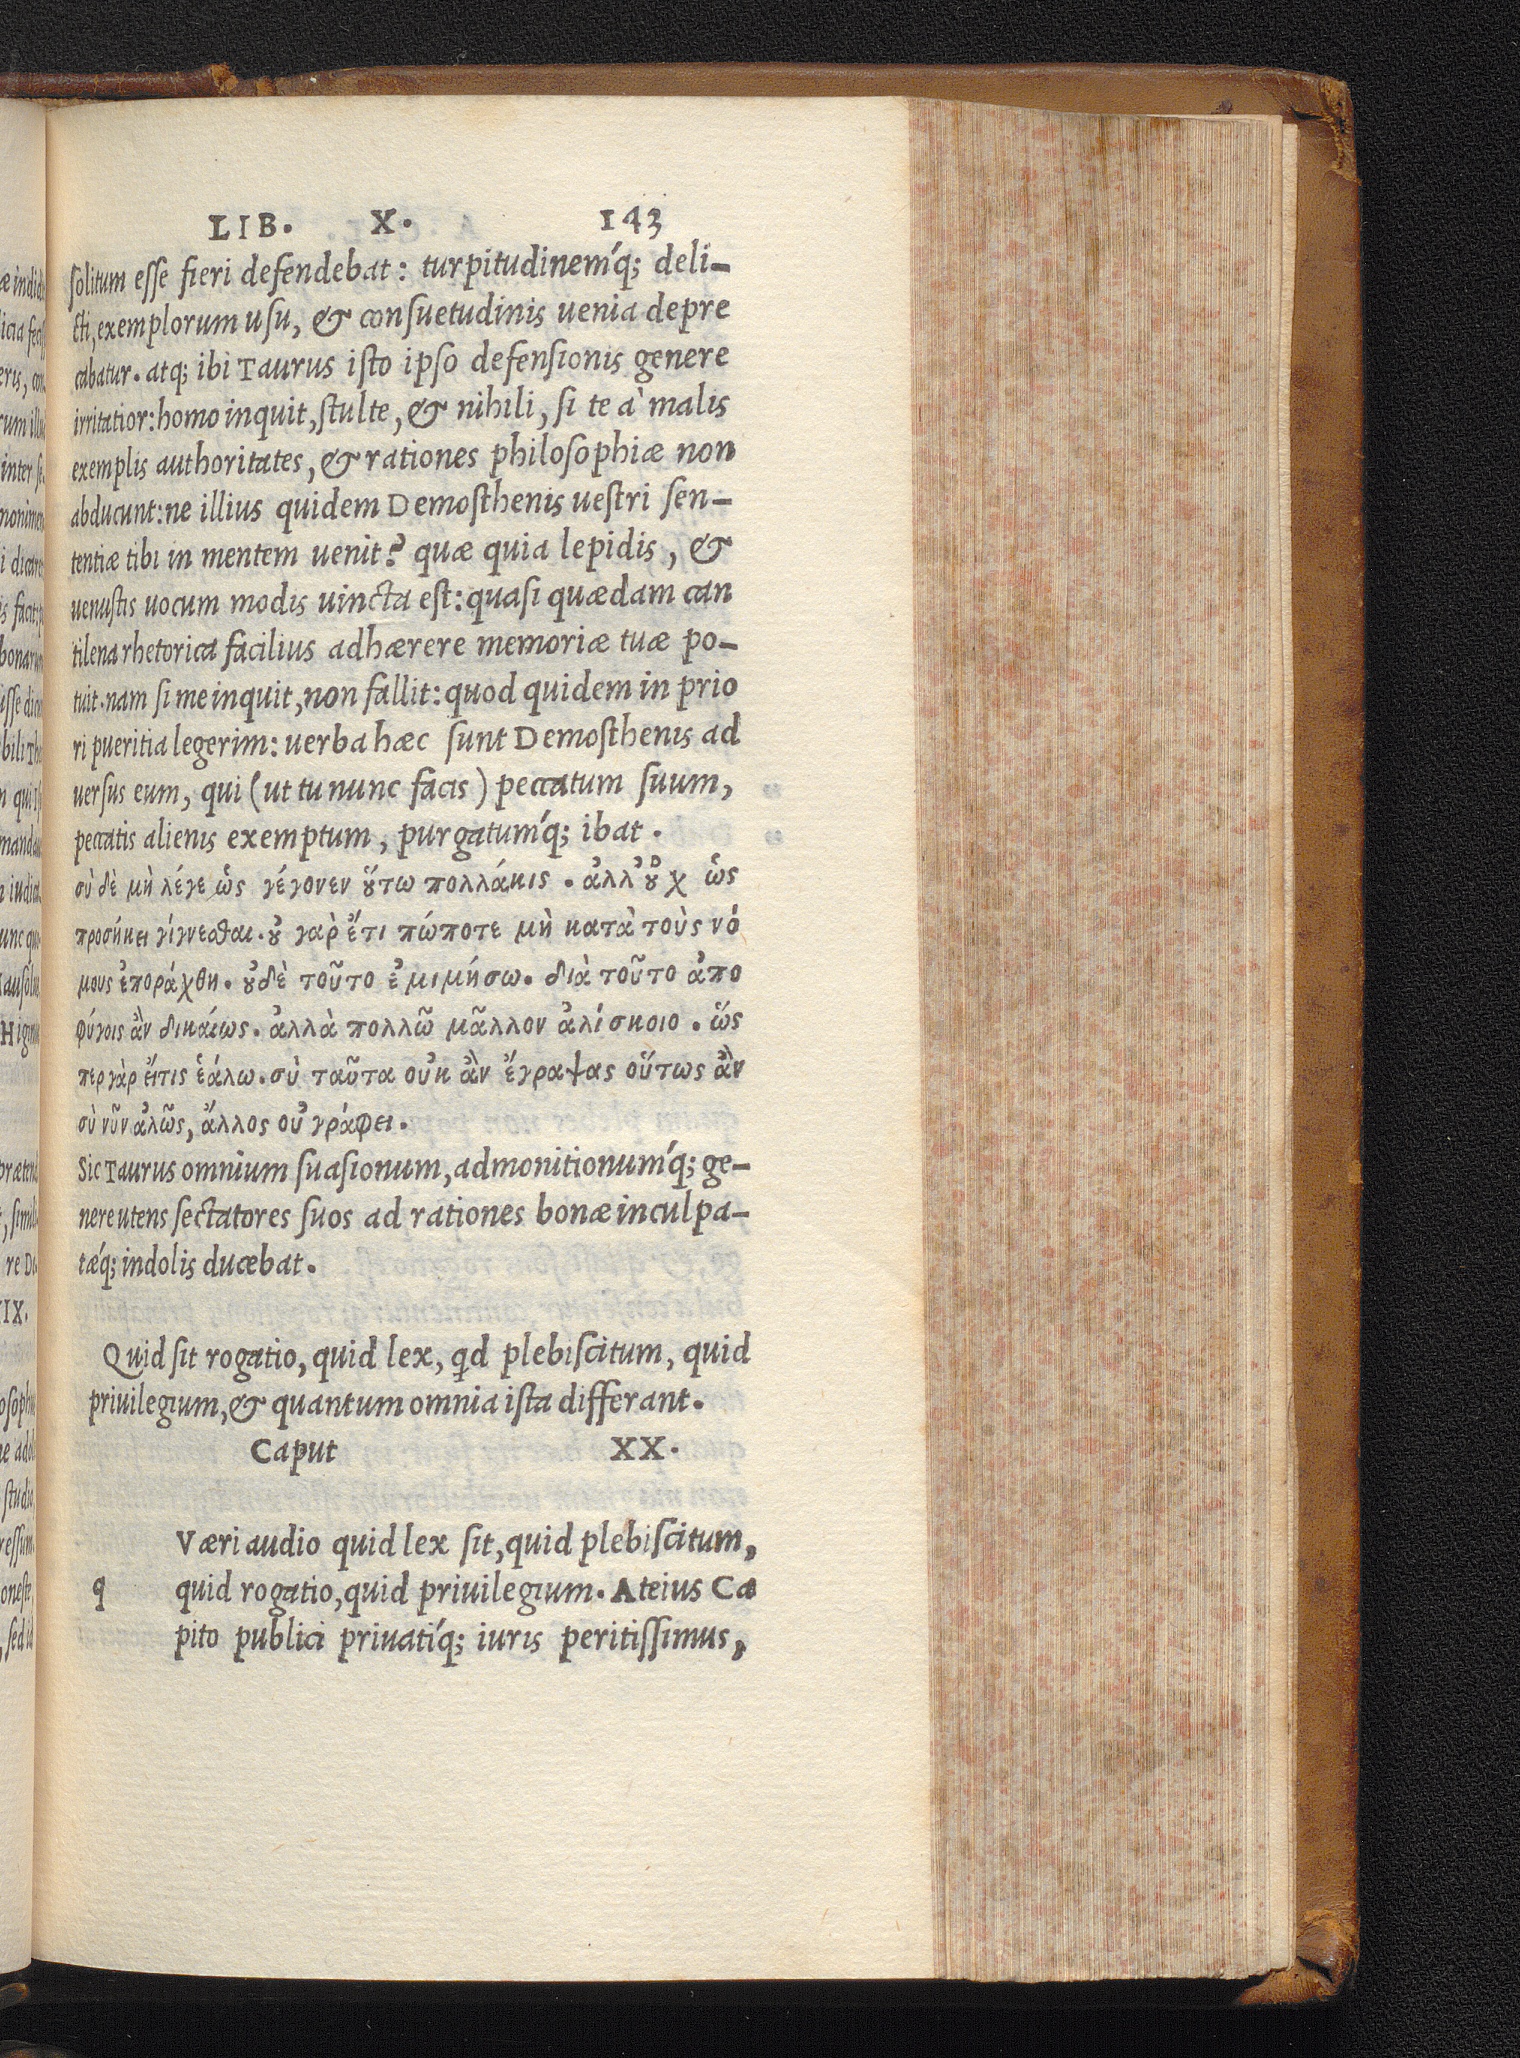 LIB. X. 143
solitum esse fieri defendebat: turpitudinemq́; deli-
cti, exemplorum usu, & consuetudinis uenia depre
cabatur. atq; ibi Taurus isto ipso defensionis genere
irritatior: homo inquit, stulte, & nihili, si te à malis
exemplis authoritates, & rationes philosophiæ non
abducunt: ne illius quidem Demosthenis uestri sen-
tentiæ tibi in mentem uenit? quæ quia lepidis, &
uenustis uocum modis uincta est: quasi quædam can
tilena rhetorica facilius adhærere memoriæ tuæ po-
tuit. nam si me inquit, non fallit: quod quidem in prio
ri pueritia legerim: uerba hæc sunt Demosthenis ad
uersus eum, qui (ut tu nunc facis) peccatum suum,
peccatis alienis exemptum, purgatumq́; ibat.
σὺ δὲ μὴ λέγε ὡς γέγονεν ȣ̔́τω πολλάκις. ἀλλ' ȣ̓χ ὡς
προσήκει γίγνεσθαι. ȣ̓ γαρ̀ ἔτι πώποτε μὴ κατὰ τοὺς νό
μους ἐποράχθη. ȣ̓δὲ τοῦτο ἐμιμήσω. διὰ τοῦτο ἀπο
φύγοις ἂν δικαίως. ἀλλὰ πολλῶ μᾶλλον ἁλίσκοιο. ὥς
περ γὰρ εἴτις ἑάλω. σὺ ταῦτα οὐκ ἂν ἔγραψας οὕτως ἂν
σὺ νῦν ἁλῶς, ἄλλος οὐ γράφει.
Sic Taurus omnium suasionum, admonitionumq́; ge-
nere utens sectatores suos ad rationes bonæ inculpa-
tæq́; indolis ducebat.
Quid sit rogatio, quid lex, qd plebiscitum, quid
priuilegium, & quantum omnia ista differant.
Caput XX.
Væri audio quid lex sit, quid plebiscitum,
q quid rogatio, quid priuilegium. Ateius Ca
pito publici priuatiq́; iuris peritissimus,